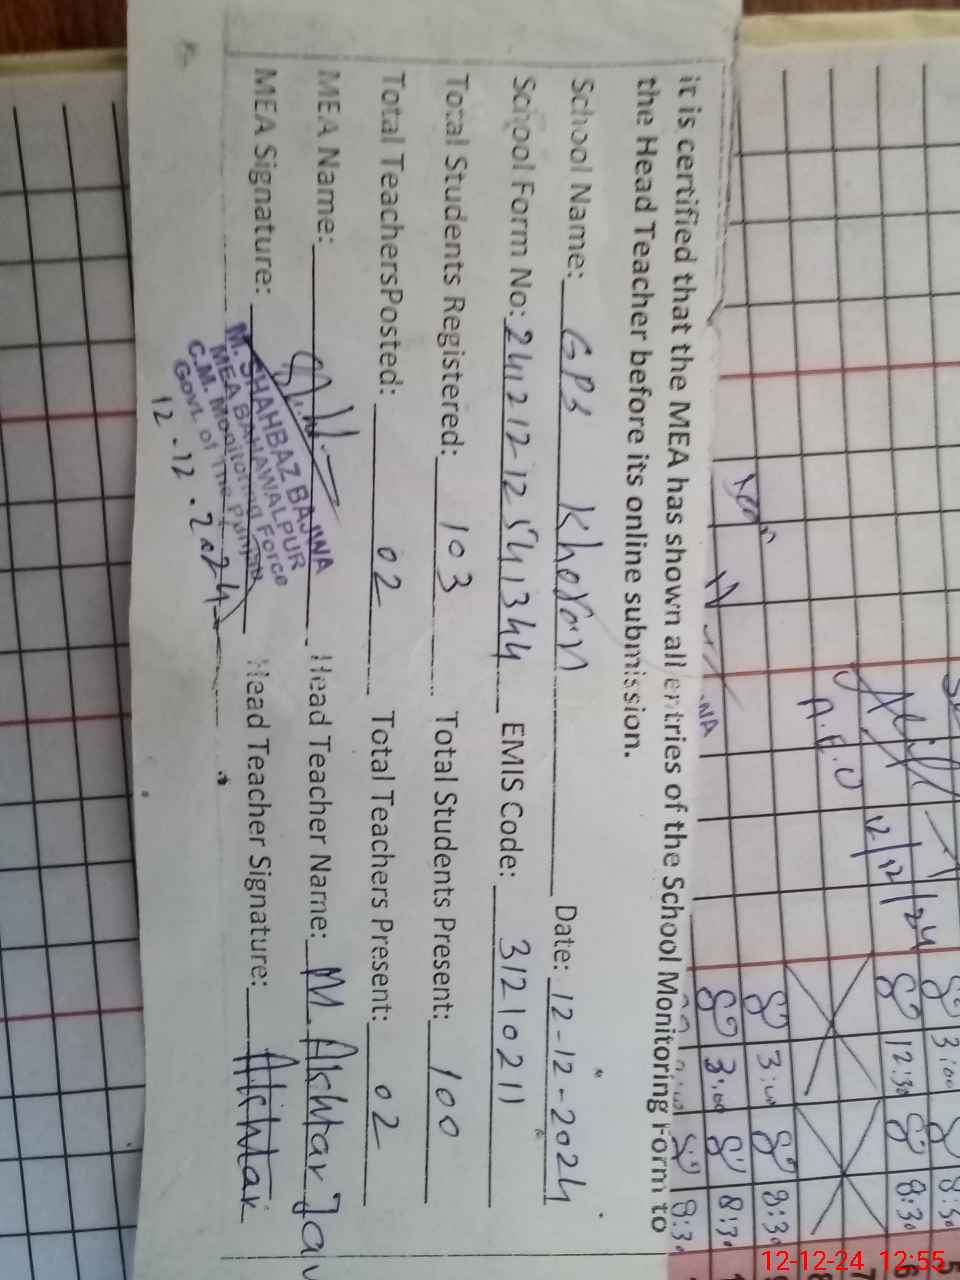 it is certified that the MEA has shown all entries of the School Monitoring Form to
the Head Teacher before its online submission.
School Name: GPS Khoran Date: 12-12-2024
School Form No: 24121212541344 EMIS Code: 31210211
Total Students Registered: 103 Total Students Present: 100
Total TeachersPosted: 02 Total Teachers Present: 02
MEA Name: Head Teacher Name: M. Akhtar Jav
MEA Signature: Head Teacher Signature: Akhtar
M. SHAHBAZ BAJWA
MEA BAHAWALPUR
C.M. Monitoring Force
Govt. of The Punjab
12.12.2024
A.E.O
12/12/24
3:00
8:30
12:30
8:30
3:00
8:30
3:00
8:30
8:30
5
6
7
12-12-24 12:55